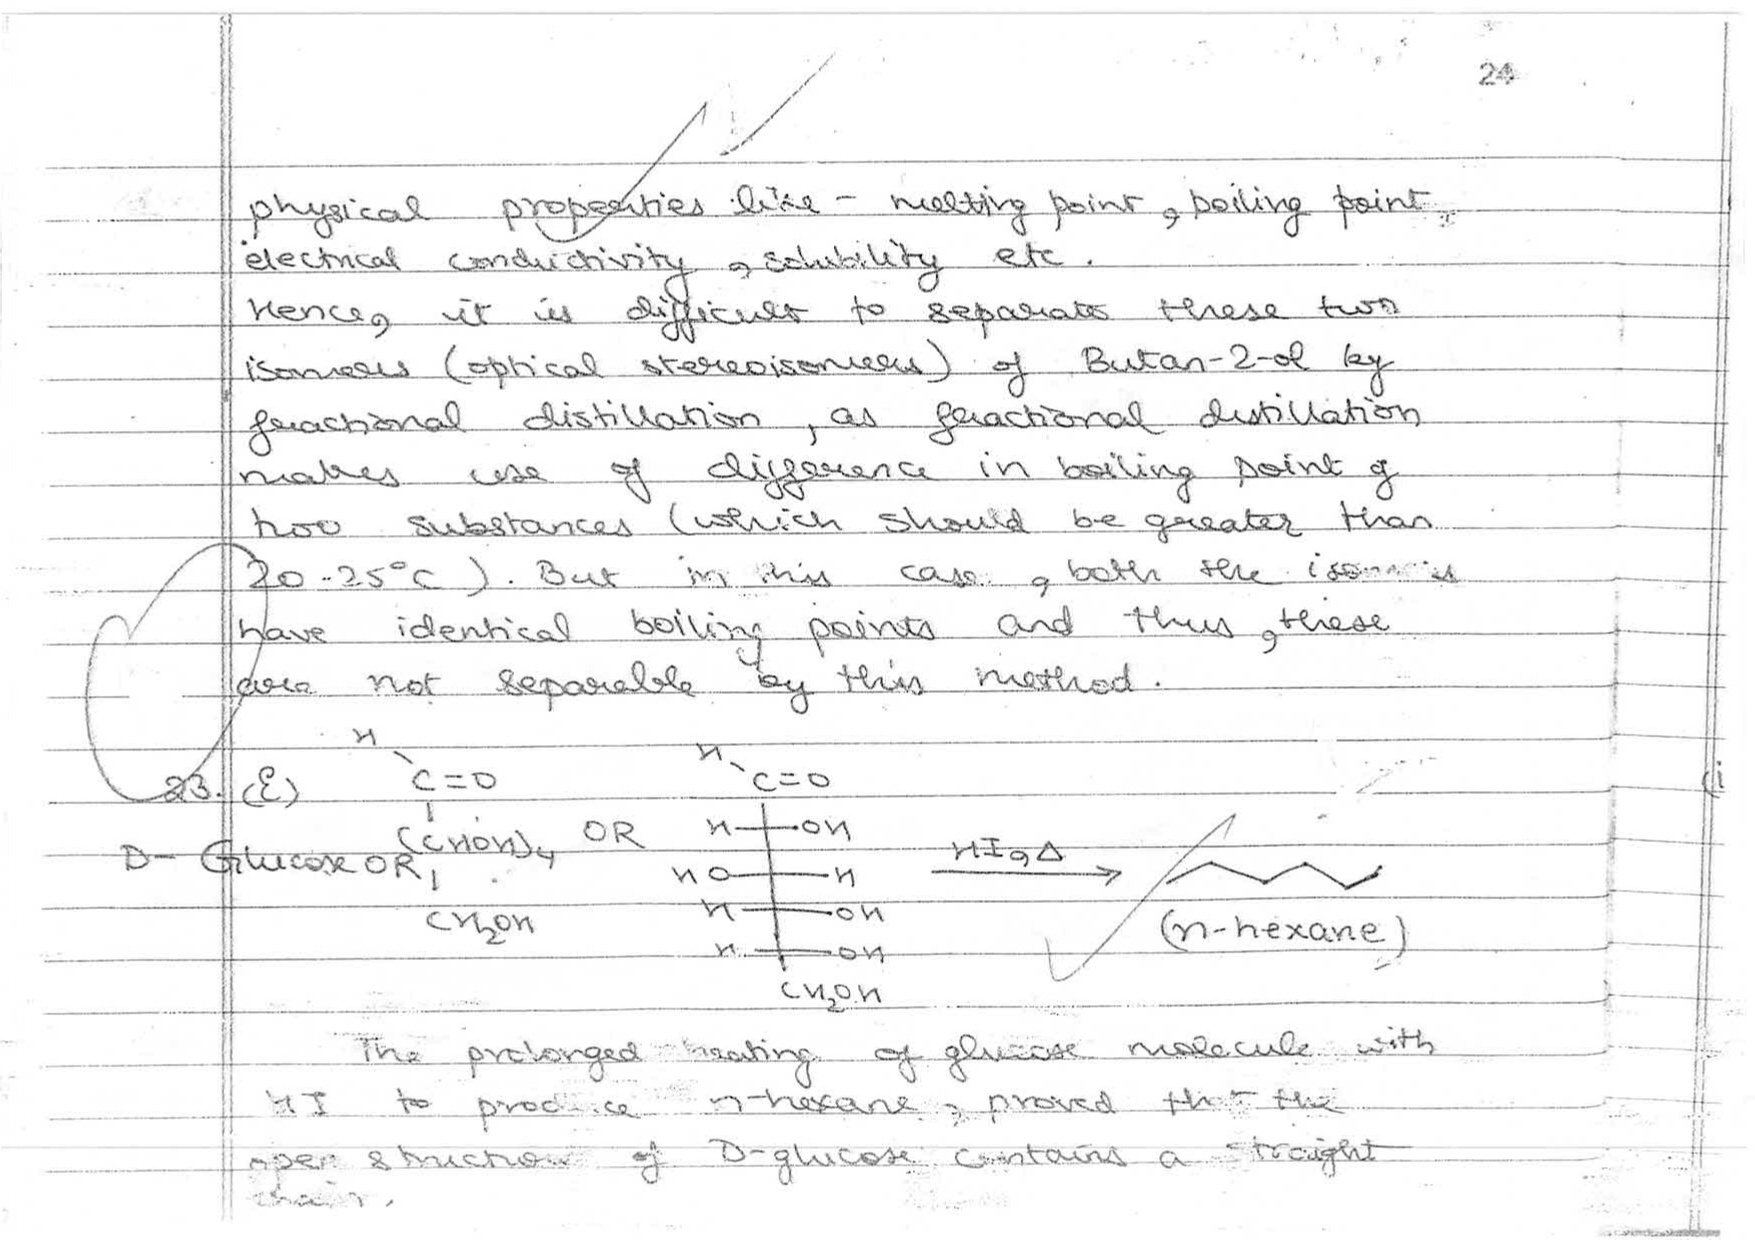 24
physical properties like - melting point, boiling point,
electrical conductivity, solubility etc.
Hence, it is difficult to separate these two
isomers (optical stereoisomers) of Butan-2-ol by
fractional distillation, as fractional distillation
makes use of difference in boiling point of
two substances (which should be greater than
20-25°C). But in this case, both the isomers
have identical boiling points and thus, these
are not separable by this method.
23. (E)
D- Glucose OR
H
C=O
(CHOH)4
CH2OH
OR
H
C=O
H OH
HO H
H OH
H OH
CH2OH
HI, Δ
(n-hexane)
The prolonged heating of glucose molecule with
HI to produce n-hexane, proved that the
open structure of D-glucose contains a straight
chain.